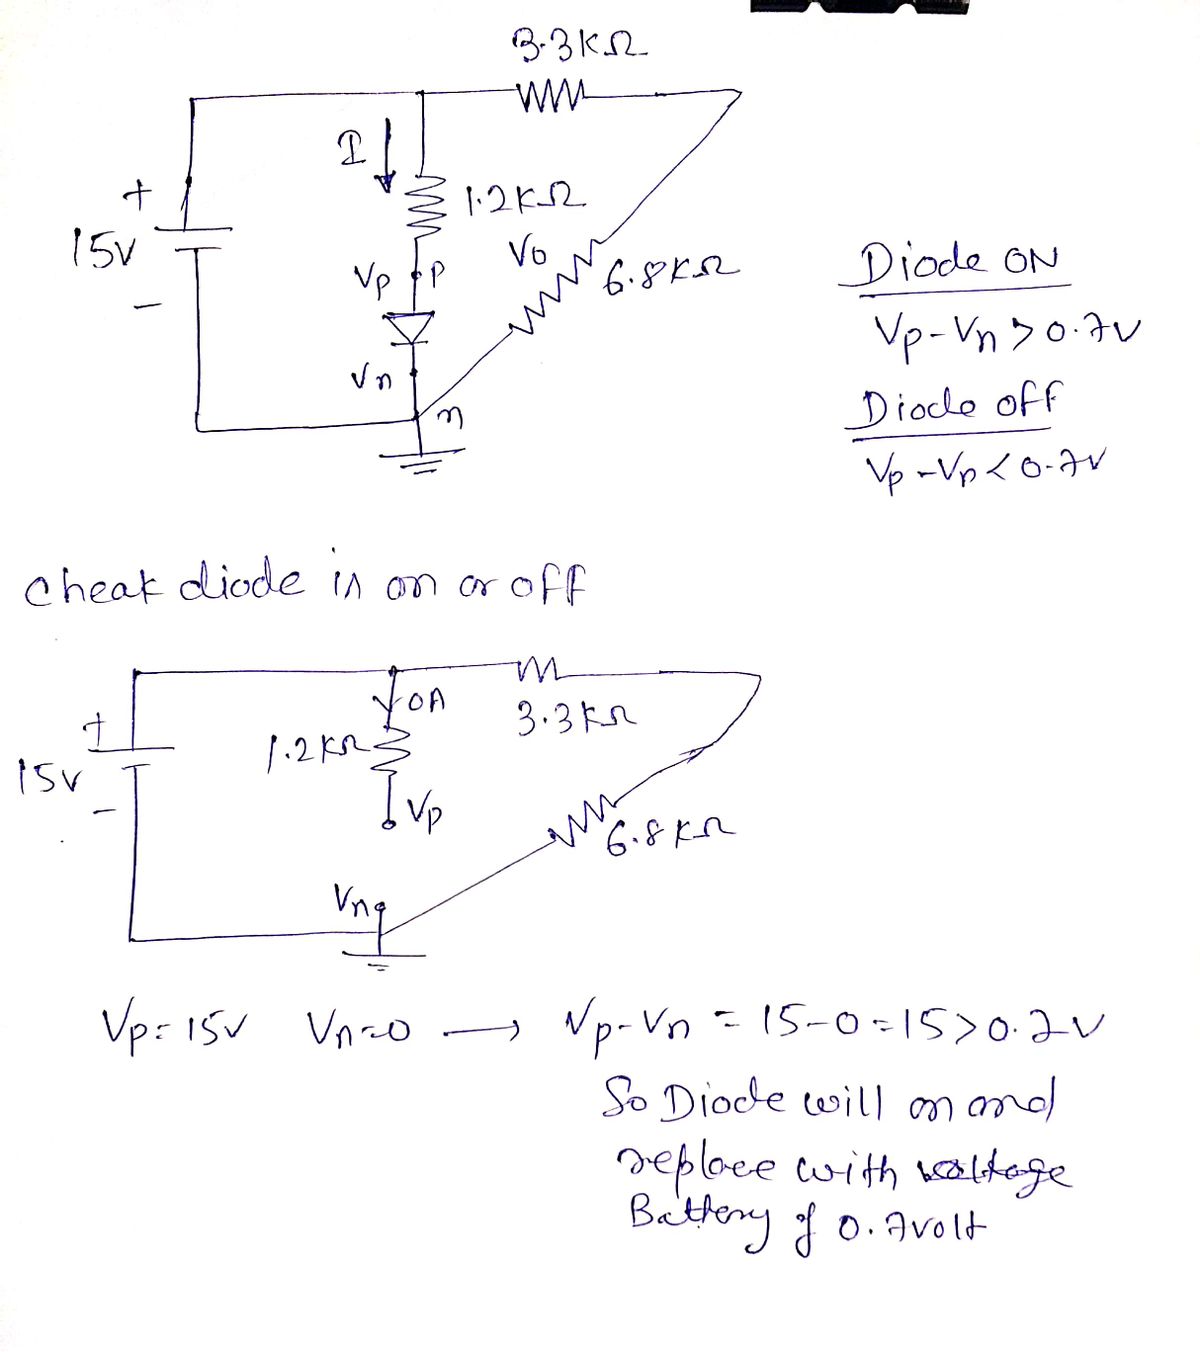 3.3KΩ
I
+
15V
-
1.2KΩ
Vp
P
Vo
6.8KΩ
Vn
n
Diode ON
Vp-Vn > 0.7V
Diode off
Vp-Vn < 0.7V
cheak diode is on or off
+
15V
-
0A
1.2KΩ
3.3KΩ
Vp
6.8KΩ
Vn
Vp = 15V Vn=0 → Vp-Vn = 15-0=15>0.7V
So Diode will on and
replace with voltage
Battery of 0.7volt